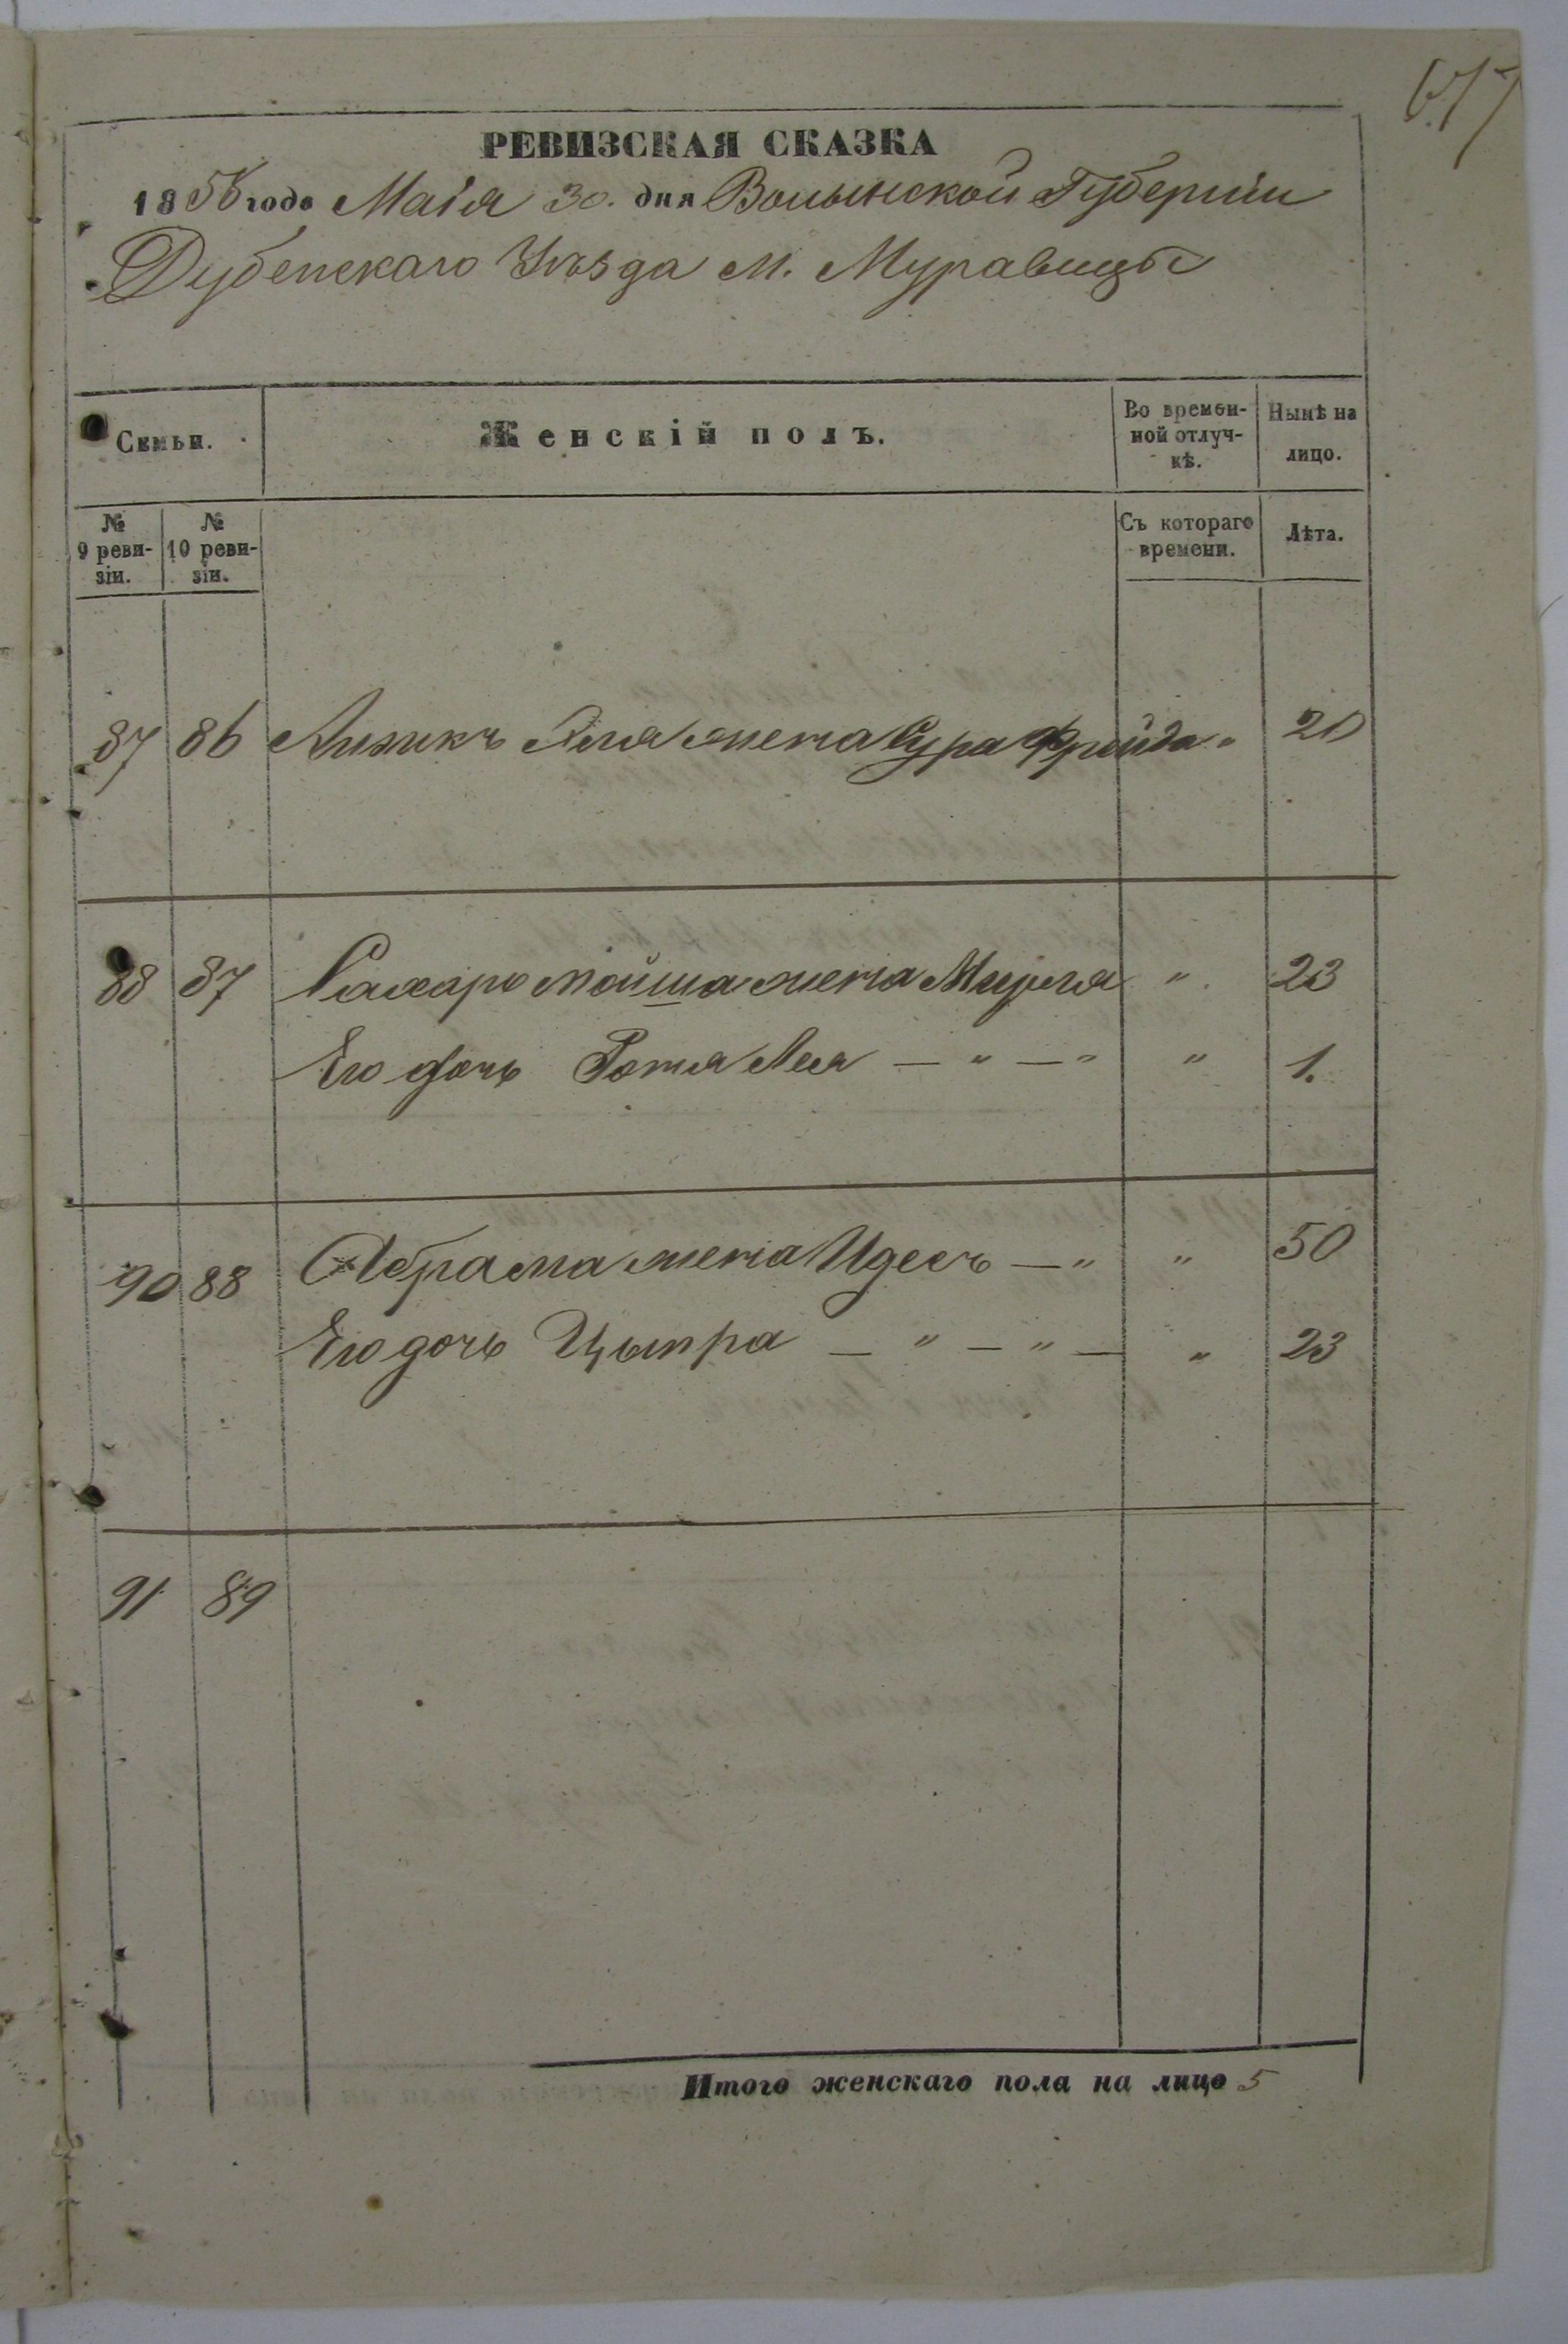 677
РЕВИЗСКАЯ СКАЗКА
1858 года Маія 30. дня Волынской Губерніи
Дубенскаго Уѣзда М. Муравицы
Семьи.
Женскій полъ.
Во времен-
ной отлуч-
кѣ.
Нынѣ на
лицо.
№
9 реви-
зіи.
№
10 реви-
зіи.
Съ котораго
времени.
Лѣта.
87 86 жена Сура Фрейда " 20
88 87 Мойша жена Мирля " 23
Его дочь Лея — " — " " 1.
90 88 Абрама жена Идесъ — " " 50
Его дочь Цыпра — " — " — " 23
91 89
Итого женскаго пола на лицо 5